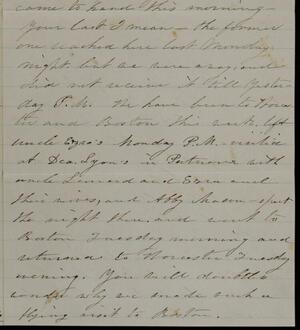 came to hand this morning –
Your last I mean – the former
one reached here last Monday
night but we were away, and
did not receive it till yester-
day P.M. We have been to Worces-
ter and Boston this week, left
uncle Ezra's Monday P.M. visited
at Dea. Lyon's in with
uncle Leonard and Ezra and
their wives, and Abby Mason – spent
the night there, and went to
Boston Tuesday morning and
returned to Worcester Tuesday
evening. You will doubtless
wonder why we made such a
flying visit to Boston.